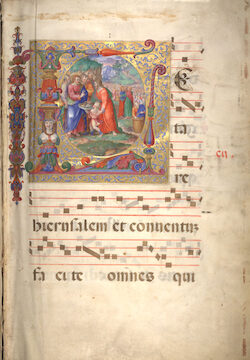 LE
ta
re
hierusalem et conuentuz
fa ci te omnes qui